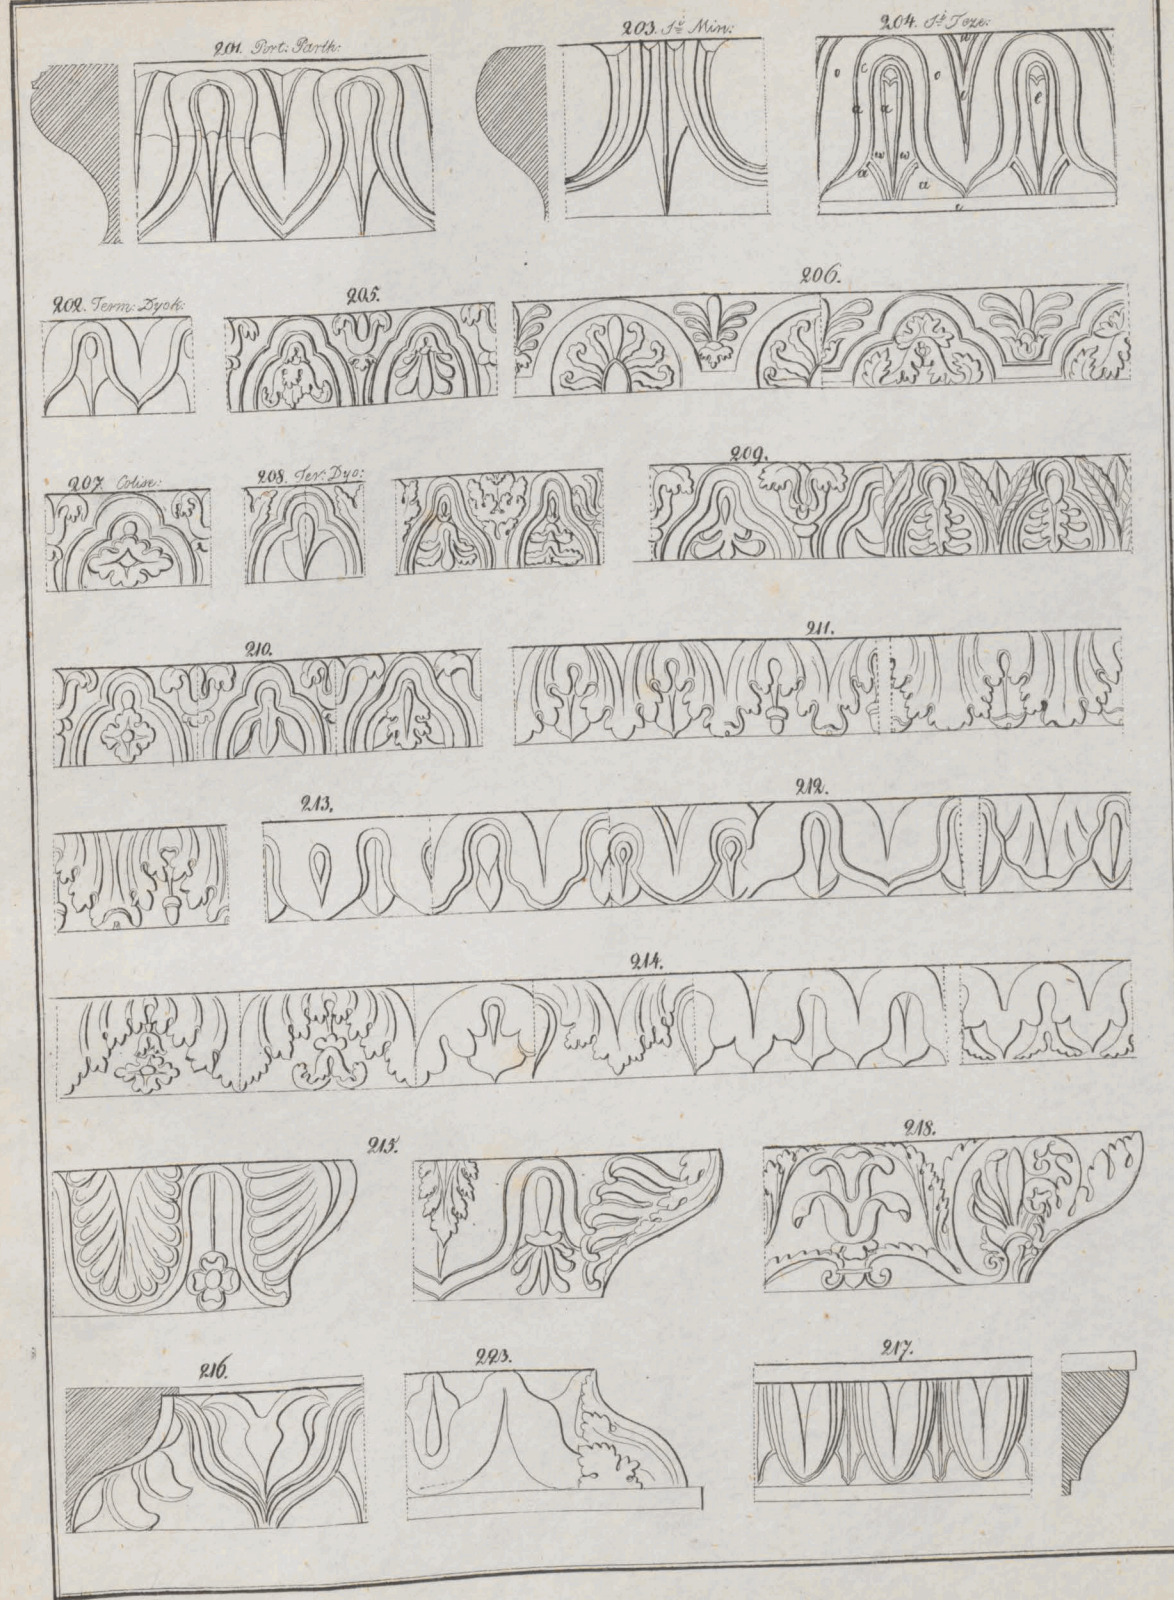 201. Port: Parth:
203. J̊t̤ Min:
204. J̊t̤ Toze:
o c o w e
a a e
w w
a a
e
202. Term: Dyok:
205.
206.
207. Colise:
208. Ter: Dyo:
209.
210.
211.
213.
212.
214.
215.
218.
216.
223.
217.